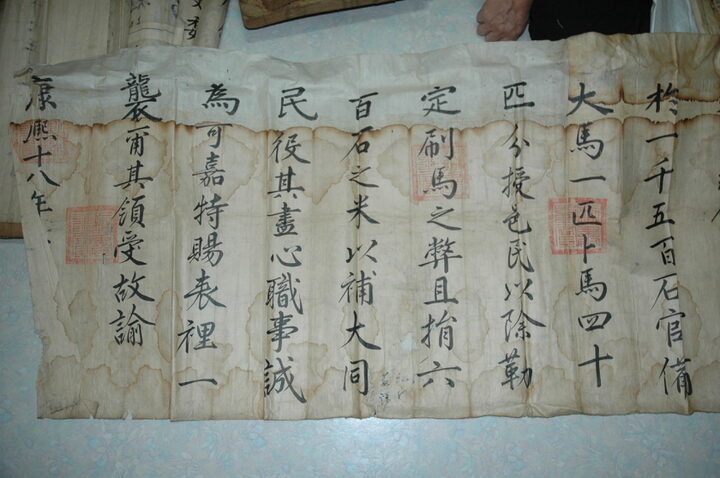 於一千五百石官備
大馬一匹卜馬四十
匹分授邑民以除勒
定刷馬之弊且捐六
百石之米以補大同
民役其盡心職事誠
為可嘉特賜表裡一
襲爾其領受故諭
康熙十八年